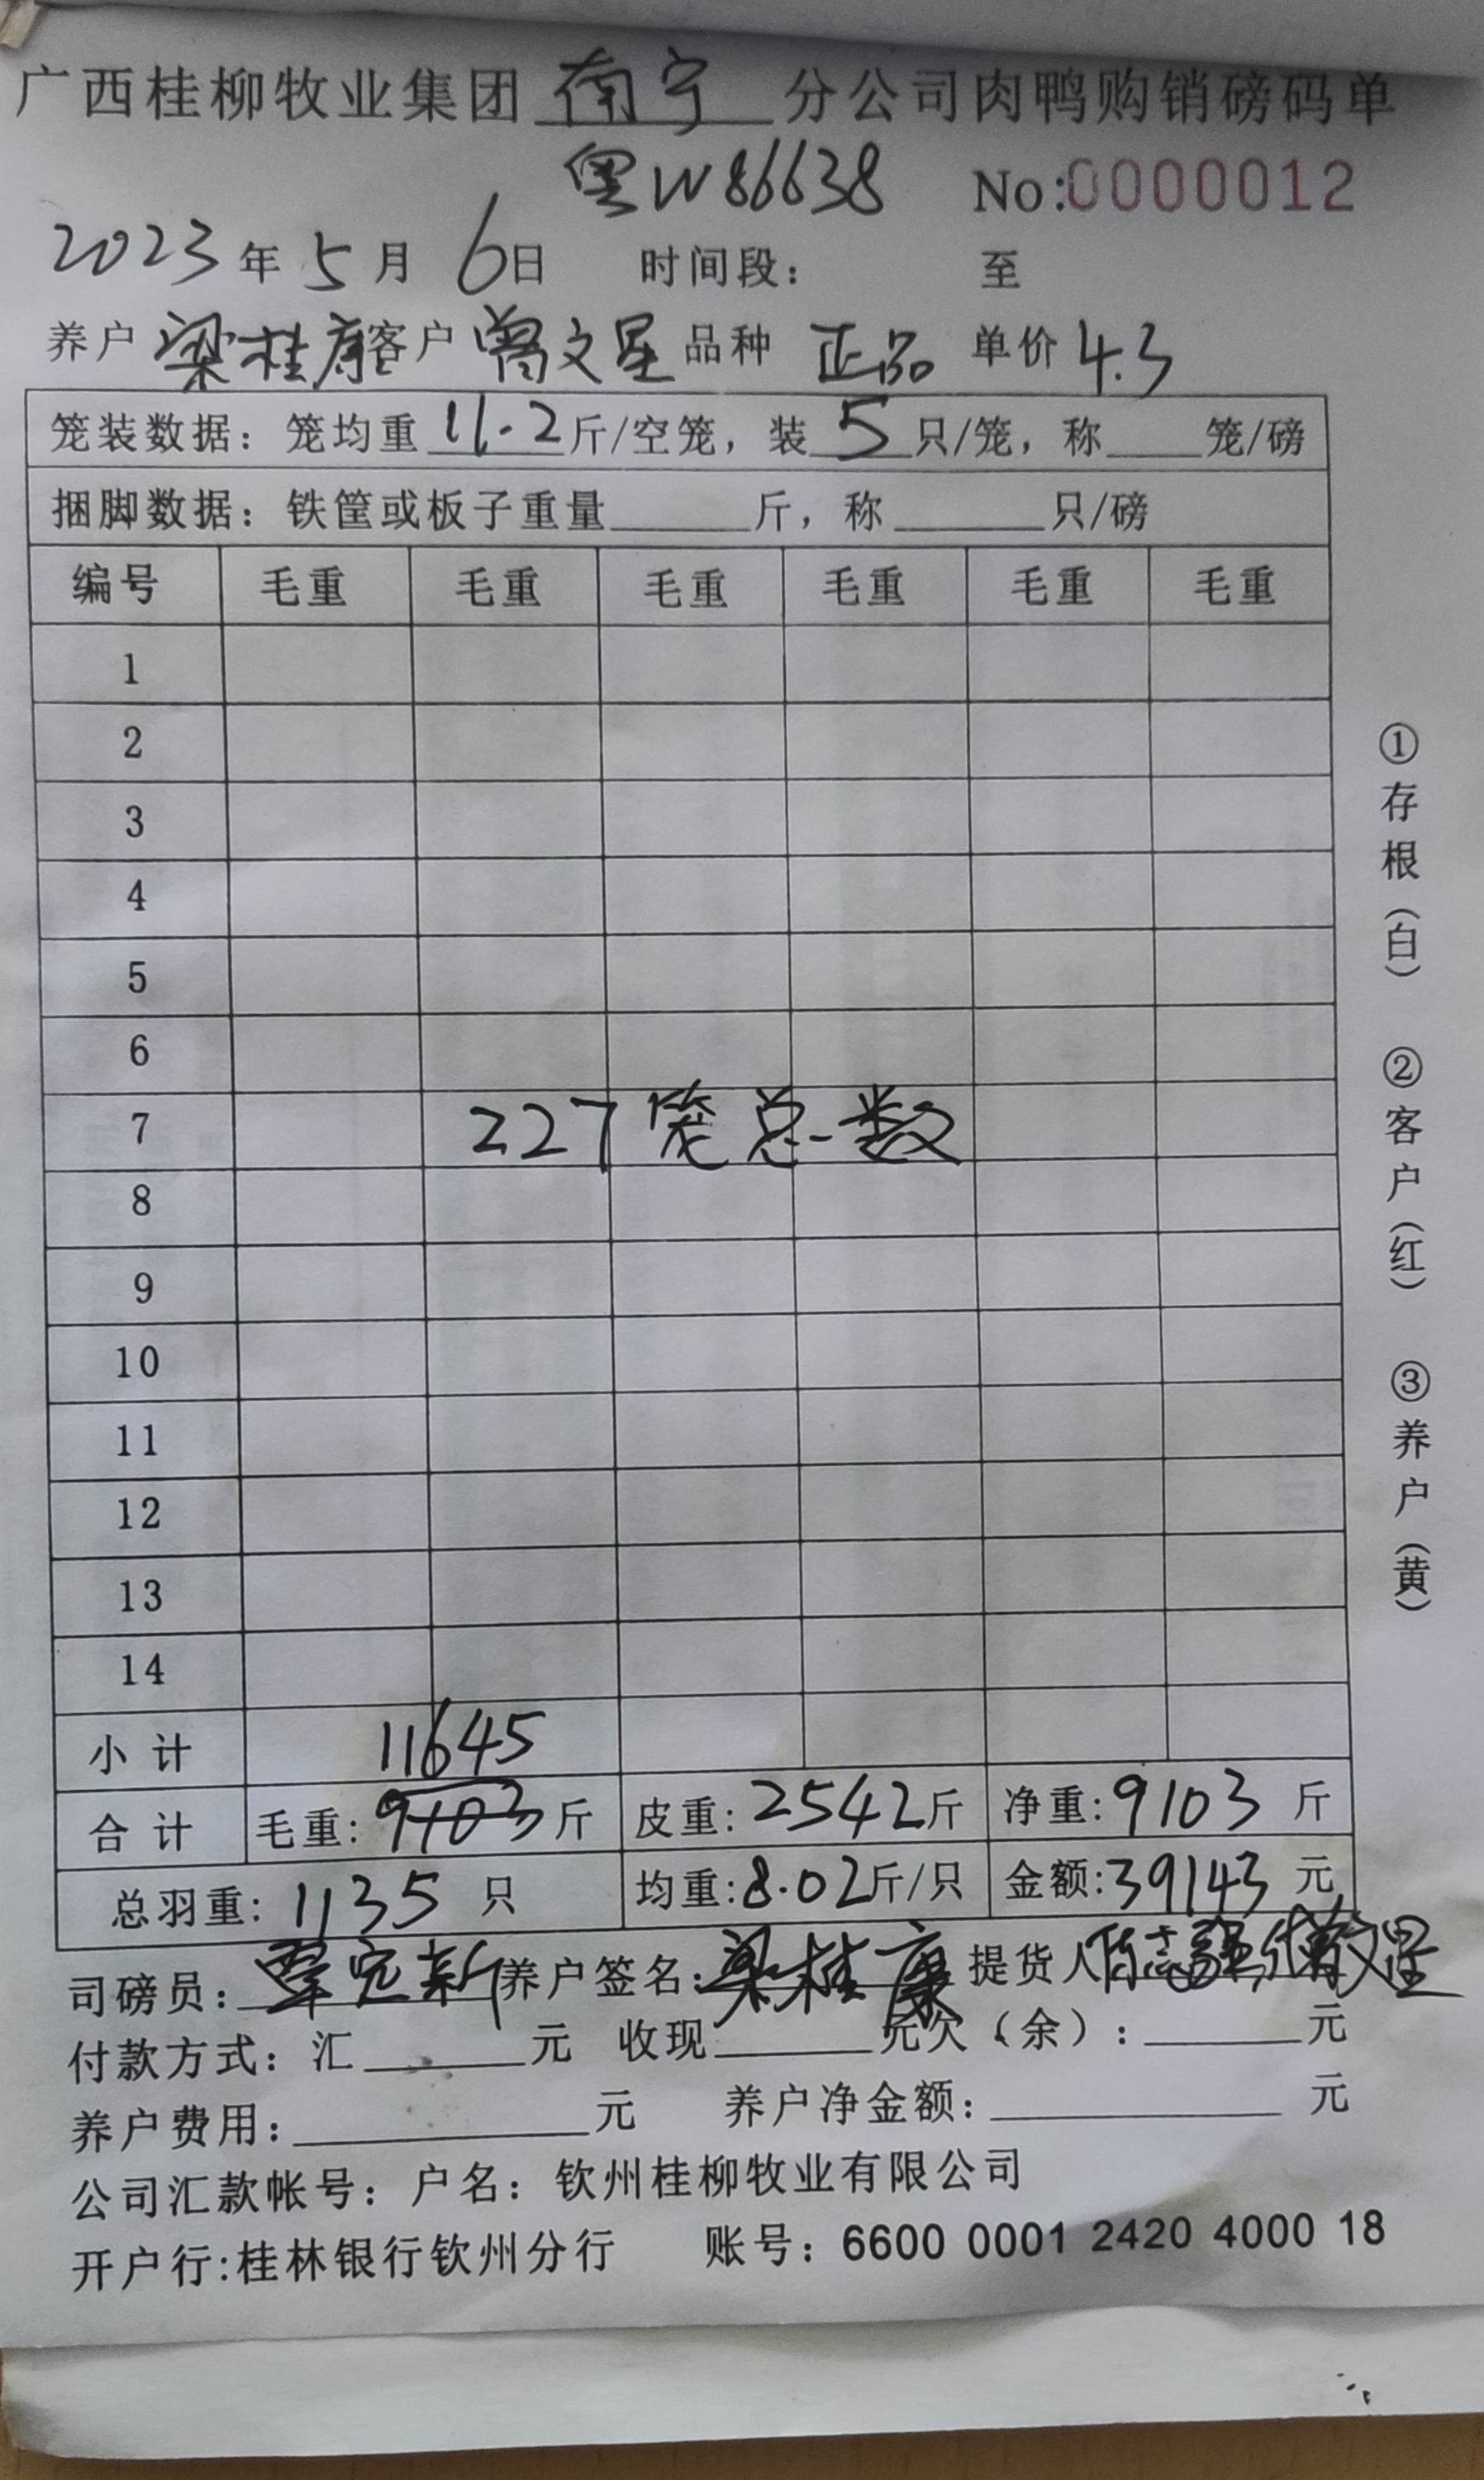 广西桂柳牧业集团南宁分公司肉鸭购销磅码单
粤W86638 No:0000012
2023年5月6日 时间段: 至
养户 梁桂康 客户 曾文星 品种 正品 单价 4.3
笼装数据: 笼均重11.2斤/空笼, 装5只/笼, 称____笼/磅
捆脚数据: 铁筐或板子重量____斤, 称____只/磅
编号 毛重 毛重 毛重 毛重 毛重 毛重
1
2
3
4
5
6
7 227笼总数
8
9
10
11
12
13
14
小计 11645
合计 毛重: 9103斤 皮重: 2542斤 净重: 9103斤
总羽重: 1135只 均重: 8.02斤/只 金额: 39143元
司磅员: 新 养户签名: 梁桂康 提货人 陈志强 曾文星
付款方式: 汇____元 收现____元欠(余): ____元
养户费用: ____元 养户净金额: ____元
公司汇款帐号: 户名: 钦州桂柳牧业有限公司
开户行:桂林银行钦州分行 账号: 6600 0001 2420 4000 18
①存根(白) ②客户(红) ③养户(黄)